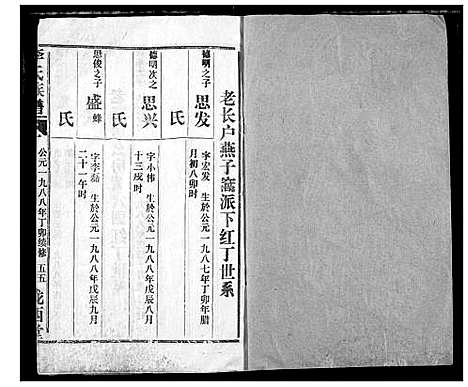 老长户燕子窩派下红丁世系
德明之子
思发
字宏发 生於公元一九八七年丁卯年腊
月初八卯时
氏
德明次之
思兴
字小伟 生於公元一九八八年戊辰八月
十三戌时
氏
思俊之子
盛蜂
字李磊 生於公元一九八八年戊辰九月
二十一午时
氏
李氏族谱
公元一九八八年丁卯续修 五五 陇西堂